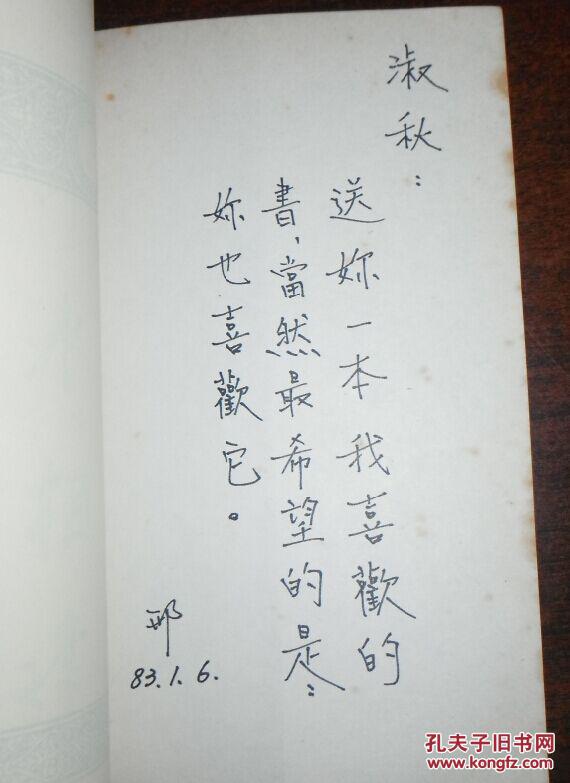 淑秋：
送妳一本我喜歡的
書，當然最希望的是：
妳也喜歡它。
邢
83.1.6.
孔夫子旧书网
www.kongfz.com